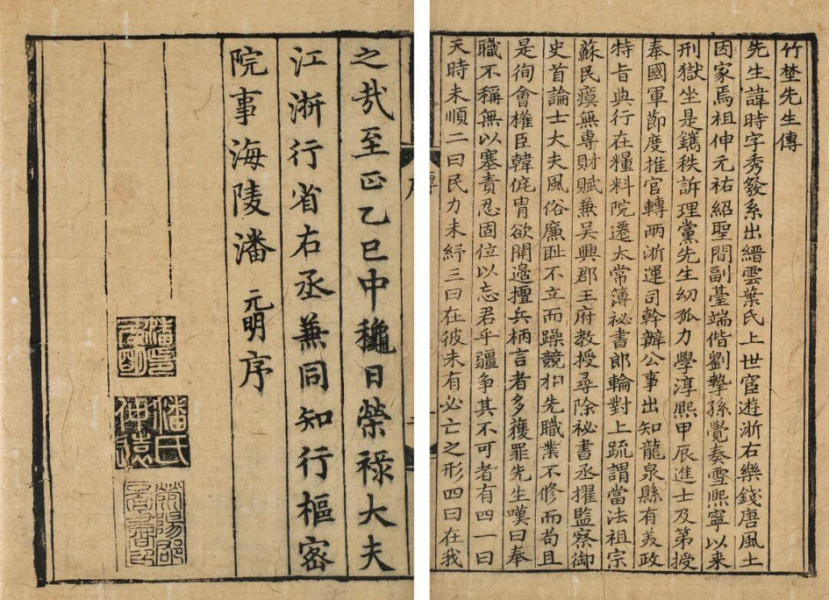 竹埜先生傳
先生諱時字秀發系出縉雲葉氏上世宦遊浙右樂錢唐風土
因家焉祖伸元祐紹聖間副臺端偕劉摯孫覺奏雪熙寧以来
刑獄坐是鐫秩訴理黨先生幼孤力學淳熙甲辰進士及第授
奉國軍節度推官轉两浙運司幹辦公事出知龍泉縣有美政
特旨典行在糧料院遷太常簿祕書郎輪對上疏謂當法祖宗
蘇民瘼無專財賦兼吳興郡王府教授尋除祕書丞擢監察御
史首論士大夫風俗廉恥不立而躁競相先職業不修而苟且
是徇會權臣韓侂冑欲開邊擅兵柄言者多獲罪先生嘆曰奉
職不稱無以塞責忍固位以忘君乎疆爭其不可者有四一曰
天時未順二曰民力未紓三曰在彼未有必亡之形四曰在我
傳
之哉至正乙巳中龝日榮祿大夫
江浙行省右丞兼同知行樞密
院事海陵潘元明序
潘氏仲遠